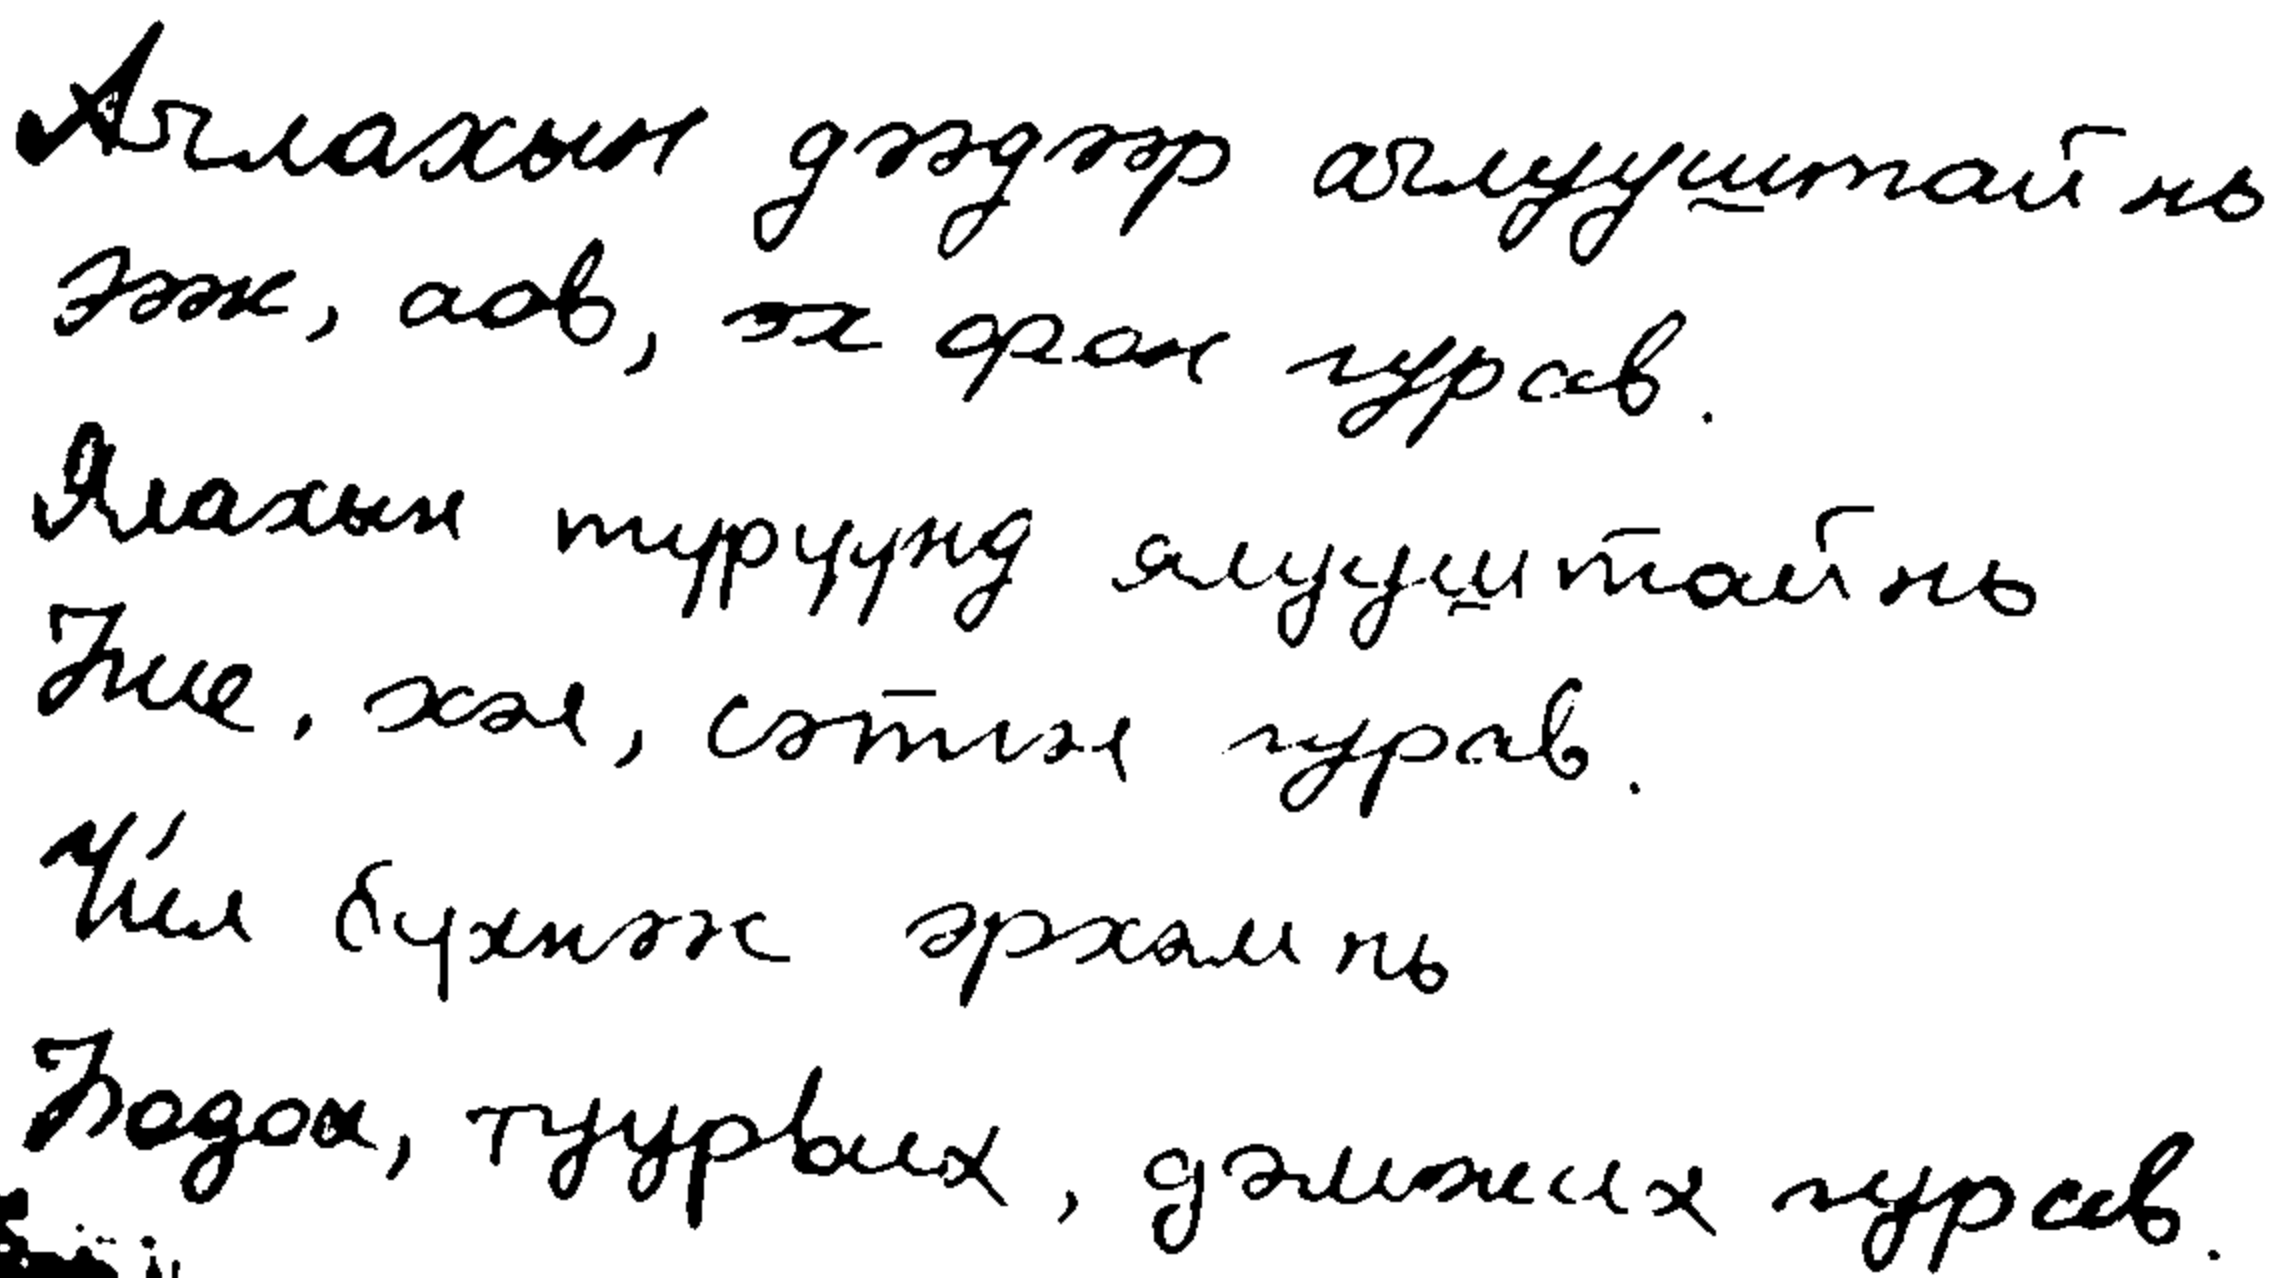 Ачлахын дээдэр ачлууштай нь
Ээж, аав, эх орон гурав.
Ялахын түрүүнд ялууштай нь
Бие, хэл, сэтгэл гурав.
Үйл бүхнээс эрхэм нь
Бодох, туурвих, дэмжих гурав.